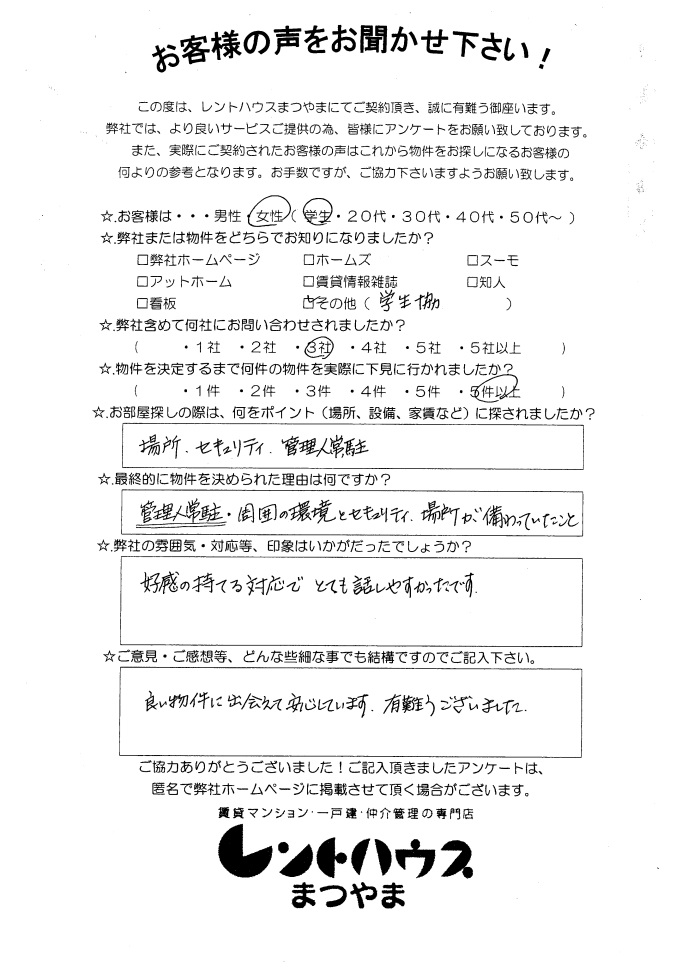 お客様の声をお聞かせ下さい！
この度は、レントハウスまつやまにてご契約頂き、誠に有難う御座います。
弊社では、より良いサービスご提供の為、皆様にアンケートをお願い致しております。
また、実際にご契約されたお客様の声はこれから物件をお探しになるお客様の
何よりの参考となります。お手数ですが、ご協力下さいますようお願い致します。
☆.お客様は・・・男性・女性（ 学生・２０代・３０代・４０代・５０代～ ）
☆.弊社または物件をどちらでお知りになりましたか？
□弊社ホームページ □ホームズ □スーモ
□アットホーム □賃貸情報雑誌 □知人
□看板 □その他（ 学生協 ）
☆.弊社含めて何社にお問い合わせされましたか？
（ ・１社 ・２社 ・３社 ・４社 ・５社 ・５社以上 ）
☆.物件を決定するまで何件の物件を実際に下見に行かれましたか？
（ ・１件 ・２件 ・３件 ・４件 ・５件 ・５件以上 ）
☆.お部屋探しの際は、何をポイント（場所、設備、家賃など）に探されましたか？
場所、セキュリティ、管理人常駐
☆.最終的に物件を決められた理由は何ですか？
管理人常駐・周囲の環境とセキュリティ、場所が備わっていたこと
☆.弊社の雰囲気・対応等、印象はいかがだったでしょうか？
好感の持てる対応で とても話しやすかったです。
☆ご意見・ご感想等、どんな些細な事でも結構ですのでご記入下さい。
良い物件に出会えて安心しています。有難うございました。
ご協力ありがとうございました！ご記入頂きましたアンケートは、
匿名で弊社ホームページに掲載させて頂く場合がございます。
賃貸マンション・一戸建・仲介管理の専門店
レントハウス
まつやま